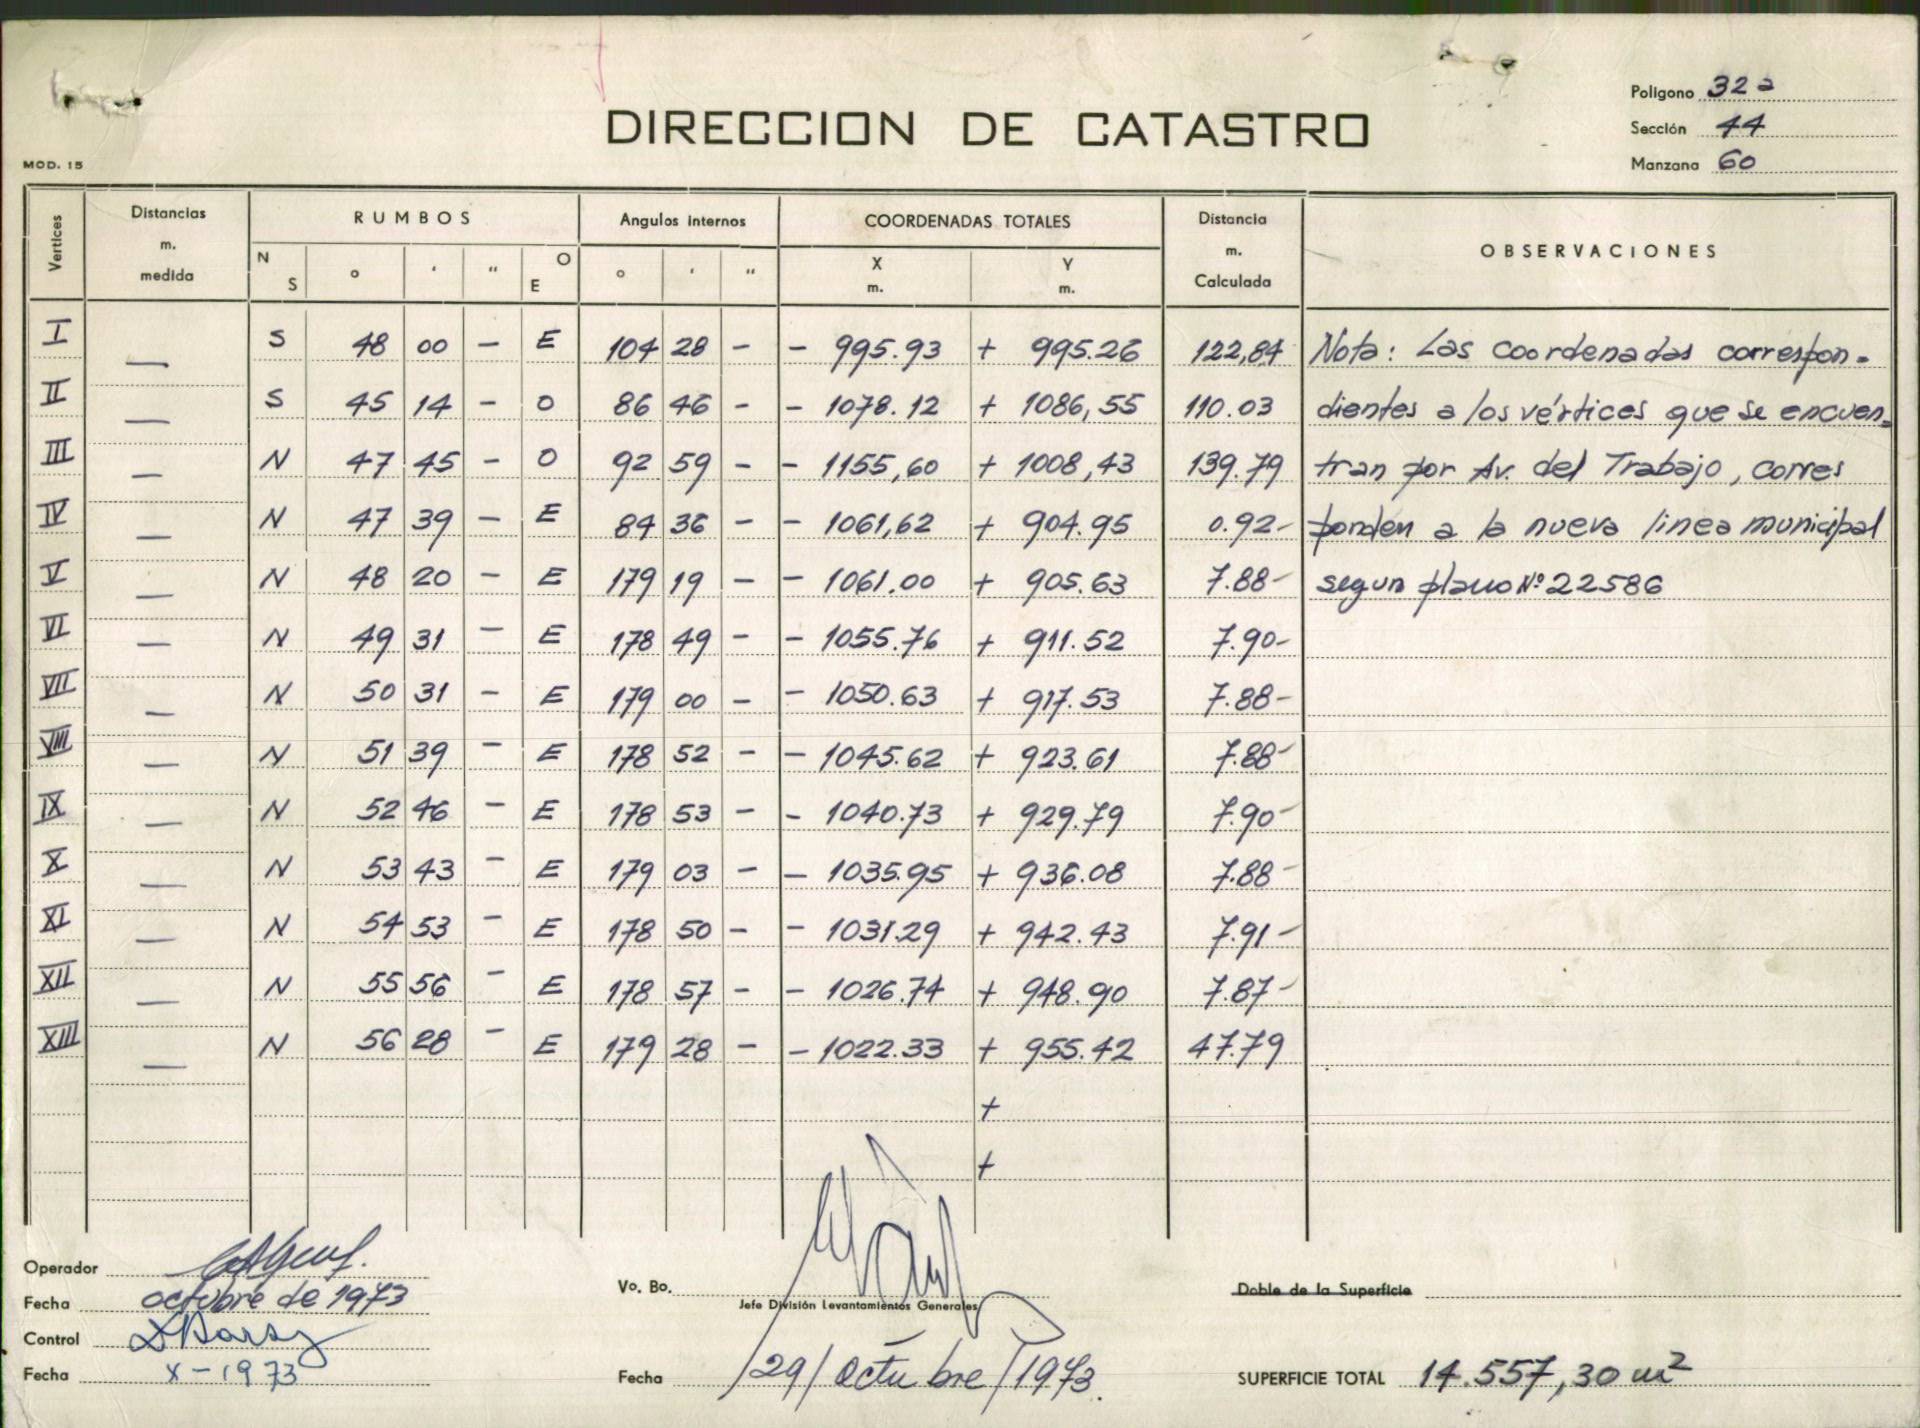 Poligono 32a
DIRECCION DE CATASTRO
Sección 44
MOD. 15
Manzana 60
Vertices Distancias m. medida RUMBOS N S ° ' " O E Angulos internos ° ' " COORDENADAS TOTALES X m. Y m. Distancia m. Calculada OBSERVACIONES
I — S 48 00 — E 104 28 - - 995.93 + 995.26 122,84 Nota: Las coordenadas correspon-
II — S 45 14 - O 86 46 - - 1078.12 + 1086,55 110.03 dientes a los vértices que se encuen-
III — N 47 45 - O 92 59 - - 1155,60 + 1008,43 139.79 tran por Av. del Trabajo, corres
IV — N 47 39 - E 84 36 - - 1061,62 + 904.95 0.92- ponden a la nueva linea municipal
V — N 48 20 - E 179 19 - - 1061.00 + 905.63 7.88- segun plano Nº 22586
VI — N 49 31 - E 178 49 - - 1055.76 + 911.52 7.90-
VII — N 50 31 - E 179 00 - - 1050.63 + 917.53 7.88-
VIII — N 51 39 - E 178 52 - - 1045.62 + 923.61 7.88-
IX — N 52 46 - E 178 53 - - 1040.73 + 929.79 7.90-
X — N 53 43 - E 179 03 - - 1035.95 + 936.08 7.88-
XI — N 54 53 - E 178 50 - - 1031.29 + 942.43 7.91-
XII — N 55 56 - E 178 57 - - 1026.74 + 948.90 7.87-
XIII — N 56 28 - E 179 28 - - 1022.33 + 955.42 47.79
+
+
Operador
Fecha octubre de 1973
Control
Fecha X-1973
Vo. Bo.
Jefe División Levantamientos Generales
Fecha /29/octubre/1973.
Doble de la Superficie
SUPERFICIE TOTAL 14.557,30 m2